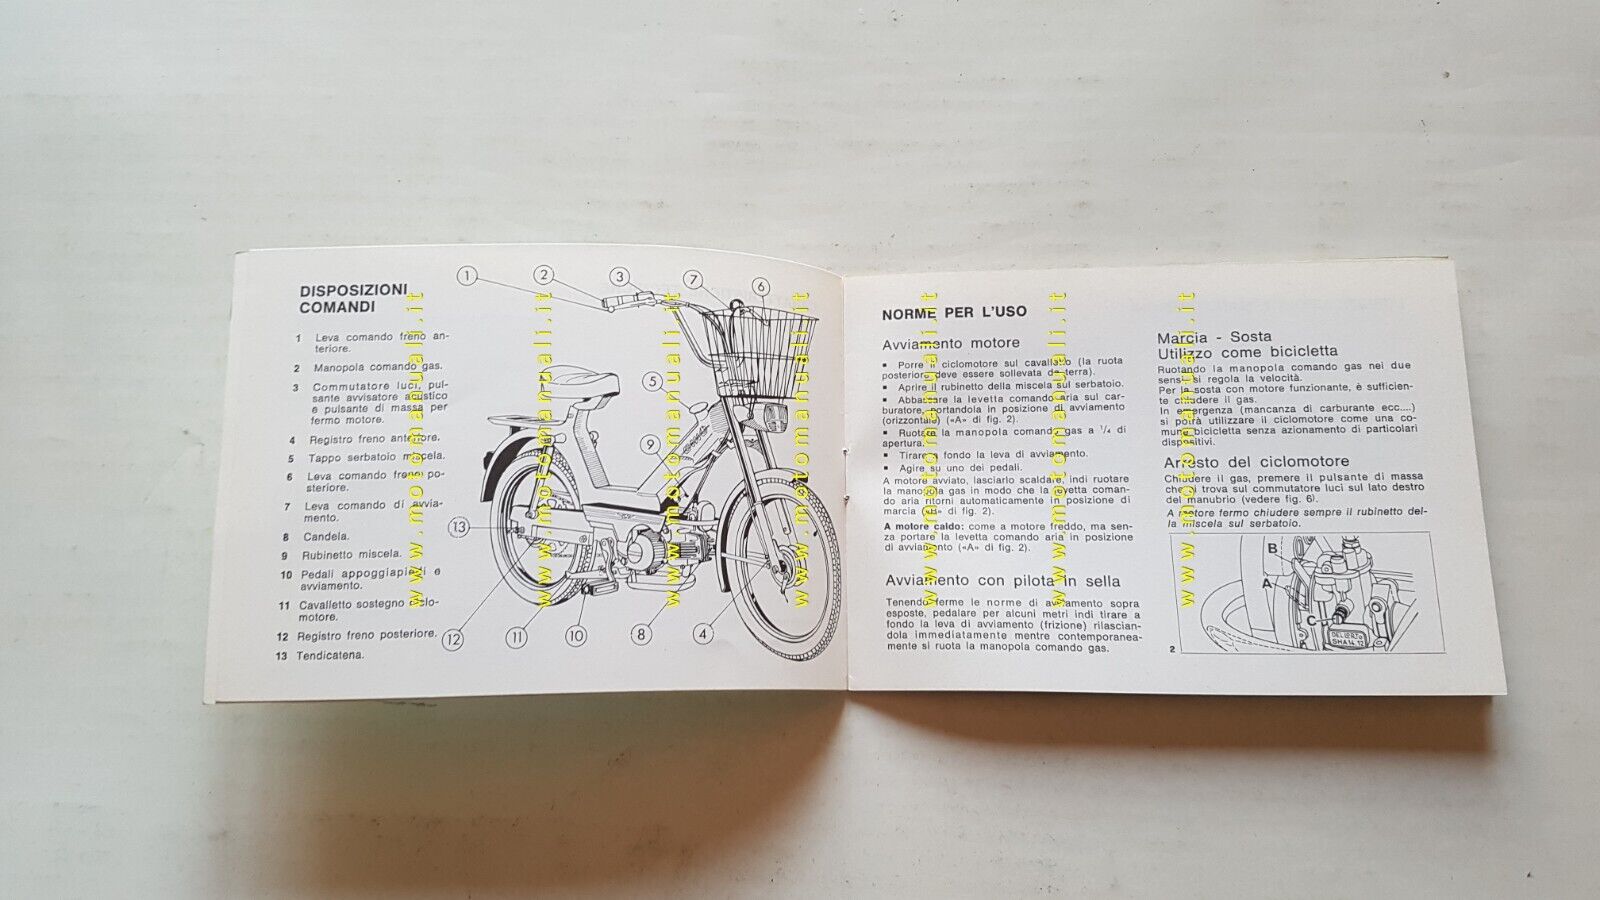 DISPOSIZIONI
COMANDI
1 Leva comando freno an-
teriore.
2 Manopola comando gas.
3 Commutatore luci, pul-
sante avvisatore acustico
e pulsante di massa per
fermo motore.
4 Registro freno anteriore.
5 Tappo serbatoio miscela.
6 Leva comando freno po-
steriore.
7 Leva comando di avvia-
mento.
8 Candela.
9 Rubinetto miscela.
10 Pedali appoggiapiedi e
avviamento.
11 Cavalletto sostegno ciclo-
motore.
12 Registro freno posteriore.
13 Tendicatena.
1 2 3 7 6
5
9
13
12 11 10 8 4
NORME PER L'USO
Avviamento motore
▪ Porre il ciclomotore sul cavalletto (la ruota
posteriore deve essere sollevata da terra).
▪ Aprire il rubinetto della miscela sul serbatoio.
▪ Abbassare la levetta comando aria sul car-
buratore, portandola in posizione di avviamento
(orizzontale) («A» di fig. 2).
▪ Ruotare la manopola comando gas a ¼ di
apertura.
▪ Tirare a fondo la leva di avviamento.
▪ Agire su uno dei pedali.
A motore avviato, lasciarlo scaldare, indi ruotare
la manopola gas in modo che la levetta coman-
do aria ritorni automaticamente in posizione di
marcia («B» di fig. 2).
A motore caldo: come a motore freddo, ma sen-
za portare la levetta comando aria in posizione
di avviamento («A» di fig. 2).
Avviamento con pilota in sella
Tenendo ferme le norme di avviamento sopra
esposte, pedalare per alcuni metri indi tirare a
fondo la leva di avviamento (frizione) rilascian-
dola immediatamente mentre contemporanea-
mente si ruota la manopola comando gas.
Marcia - Sosta
Utilizzo come bicicletta
Ruotando la manopola comando gas nei due
sensi si regola la velocità.
Per la sosta con motore funzionante, è sufficien-
te chiudere il gas.
In emergenza (mancanza di carburante ecc....)
si potrà utilizzare il ciclomotore come una co-
mune bicicletta senza azionamento di particolari
dispositivi.
Arresto del ciclomotore
Chiudere il gas, premere il pulsante di massa
che si trova sul commutatore luci sul lato destro
del manubrio (vedere fig. 6).
A motore fermo chiudere sempre il rubinetto del-
la miscela sul serbatoio.
B
A
C
DELLORTO
SHA 14 12
2
www.motomanuali.it
www.motomanuali.it
www.motomanuali.it
www.motomanuali.it
www.motomanuali.it
www.motomanuali.it
www.motomanuali.it